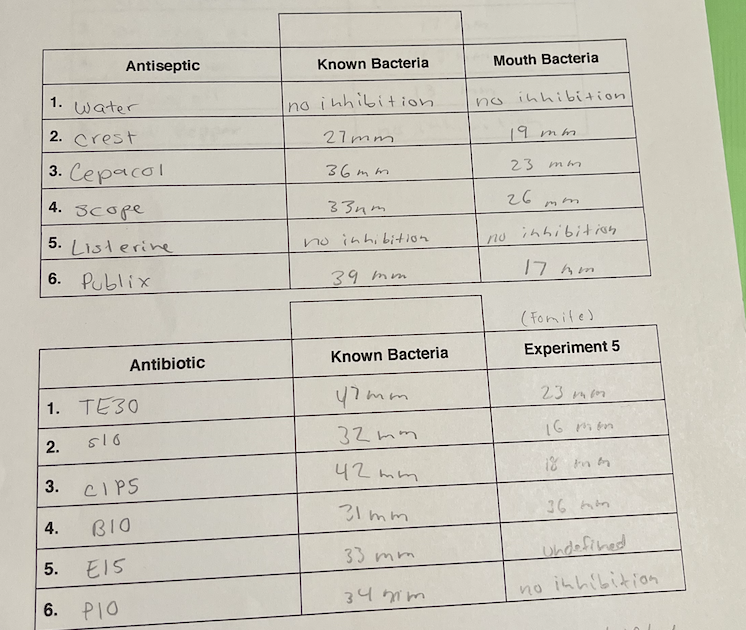 Antiseptic Known Bacteria Mouth Bacteria
1. Water no inhibition no inhibition
2. Crest 27mm 19 mm
3. Cepacol 36mm 23 mm
4. Scope 33mm 26 mm
5. Listerine no inhibition no inhibition
6. Publix 39 mm 17 mm
(Fomite)
Antibiotic Known Bacteria Experiment 5
1. TE30 47mm 23 mm
2. S10 32mm 16 mm
3. CIP5 42mm 18 mm
4. B10 31mm 36 mm
5. E15 33 mm undefined
6. P10 34 mm no inhibition